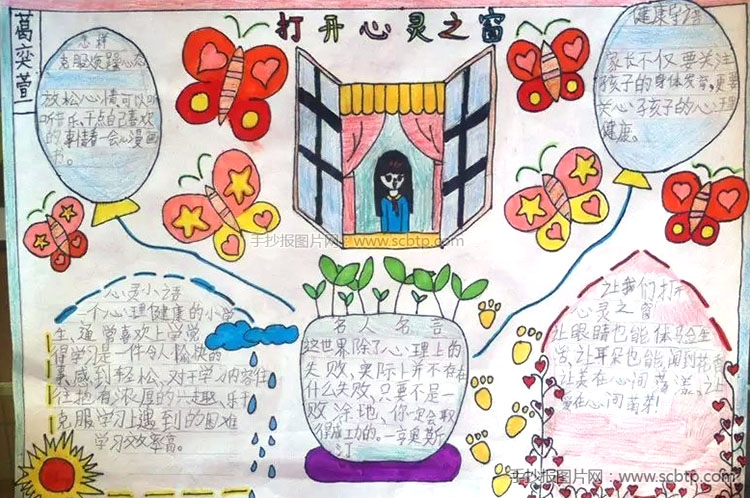 打开心灵之窗
葛奕萱
怎样
克服烦躁心态
放松心情可以听
听音乐、干点自己喜欢
的事情看一会心漫画
书。
健康导语
家长不仅要关注
孩子的身体发育,更要
关心孩子的心理
健康。
手抄报图片网:www.scbtp.com
心灵小语
一个心理健康的小学
生,通常喜欢上学觉
得学习是一件令人愉快的
事,感到轻松、对于学习内容往
往抱有浓厚的兴趣、乐于
克服学习上遇到的困难
学习效率高。
名人名言
这世界除了心理上的
失败,实际上并不存在
什么失败,只要不是一
败涂地、你一定会取
得成功的。—亨·奥斯
汀
让我们打开
心灵之窗
让眼睛也能体验生
活、让耳朵也能闻到花香
让美在心间荡漾、让
爱在心间萌芽!
手抄报图片网:www.scbtp.com